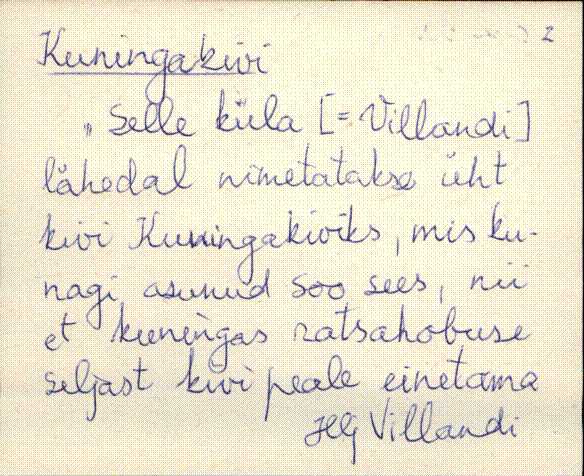 2
Kuningakivi
„Selle küla [= Villandi]
lähedal nimetatakse üht
kivi Kuningakiviks, mis ku-
nagi asunud soo sees, nii
et kuningas ratsahobuse
seljast kivi peale einetama
Villandi